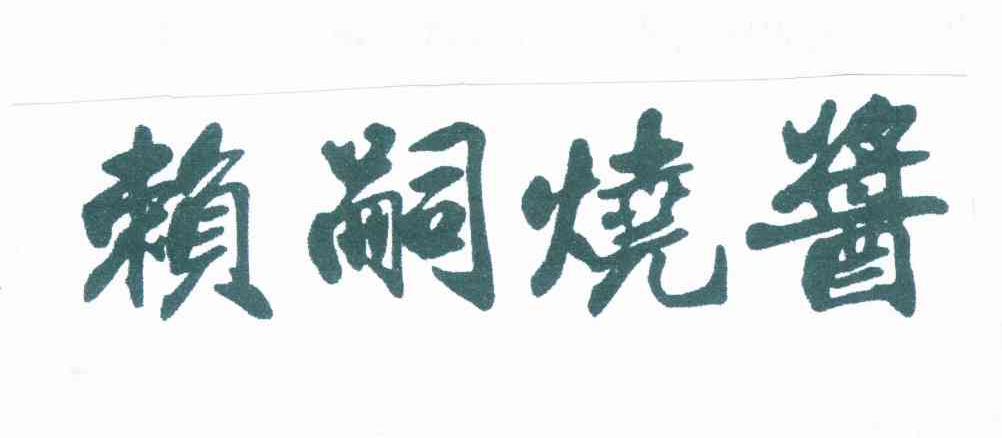 賴嗣燒醬